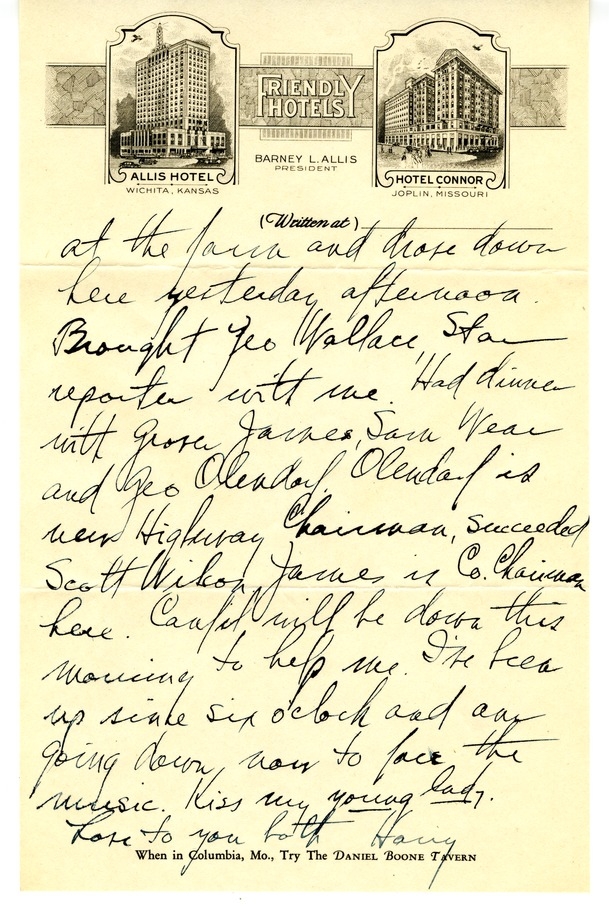 FRIENDLY
HOTELS
ALLIS HOTEL
WICHITA, KANSAS
BARNEY L. ALLIS
PRESIDENT
HOTEL CONNOR
JOPLIN, MISSOURI
(Written at)
at the farm and drove down
here yesterday afternoon.
Brought Geo Wallace, Star
reporter with me. Had dinner
with Grover James, Sam Wear
and Geo Olendorf. Olendorf is
new Highway Chairman, succeeded
Scott Wilson. James is Co. Chairman
here. Canfil will be down this
morning to help me. I've been
up since six o'clock and am
going down now to face the
music. Kiss my young lady.
Love to you both Harry
When in Columbia, Mo., Try The DANIEL BOONE TAVERN